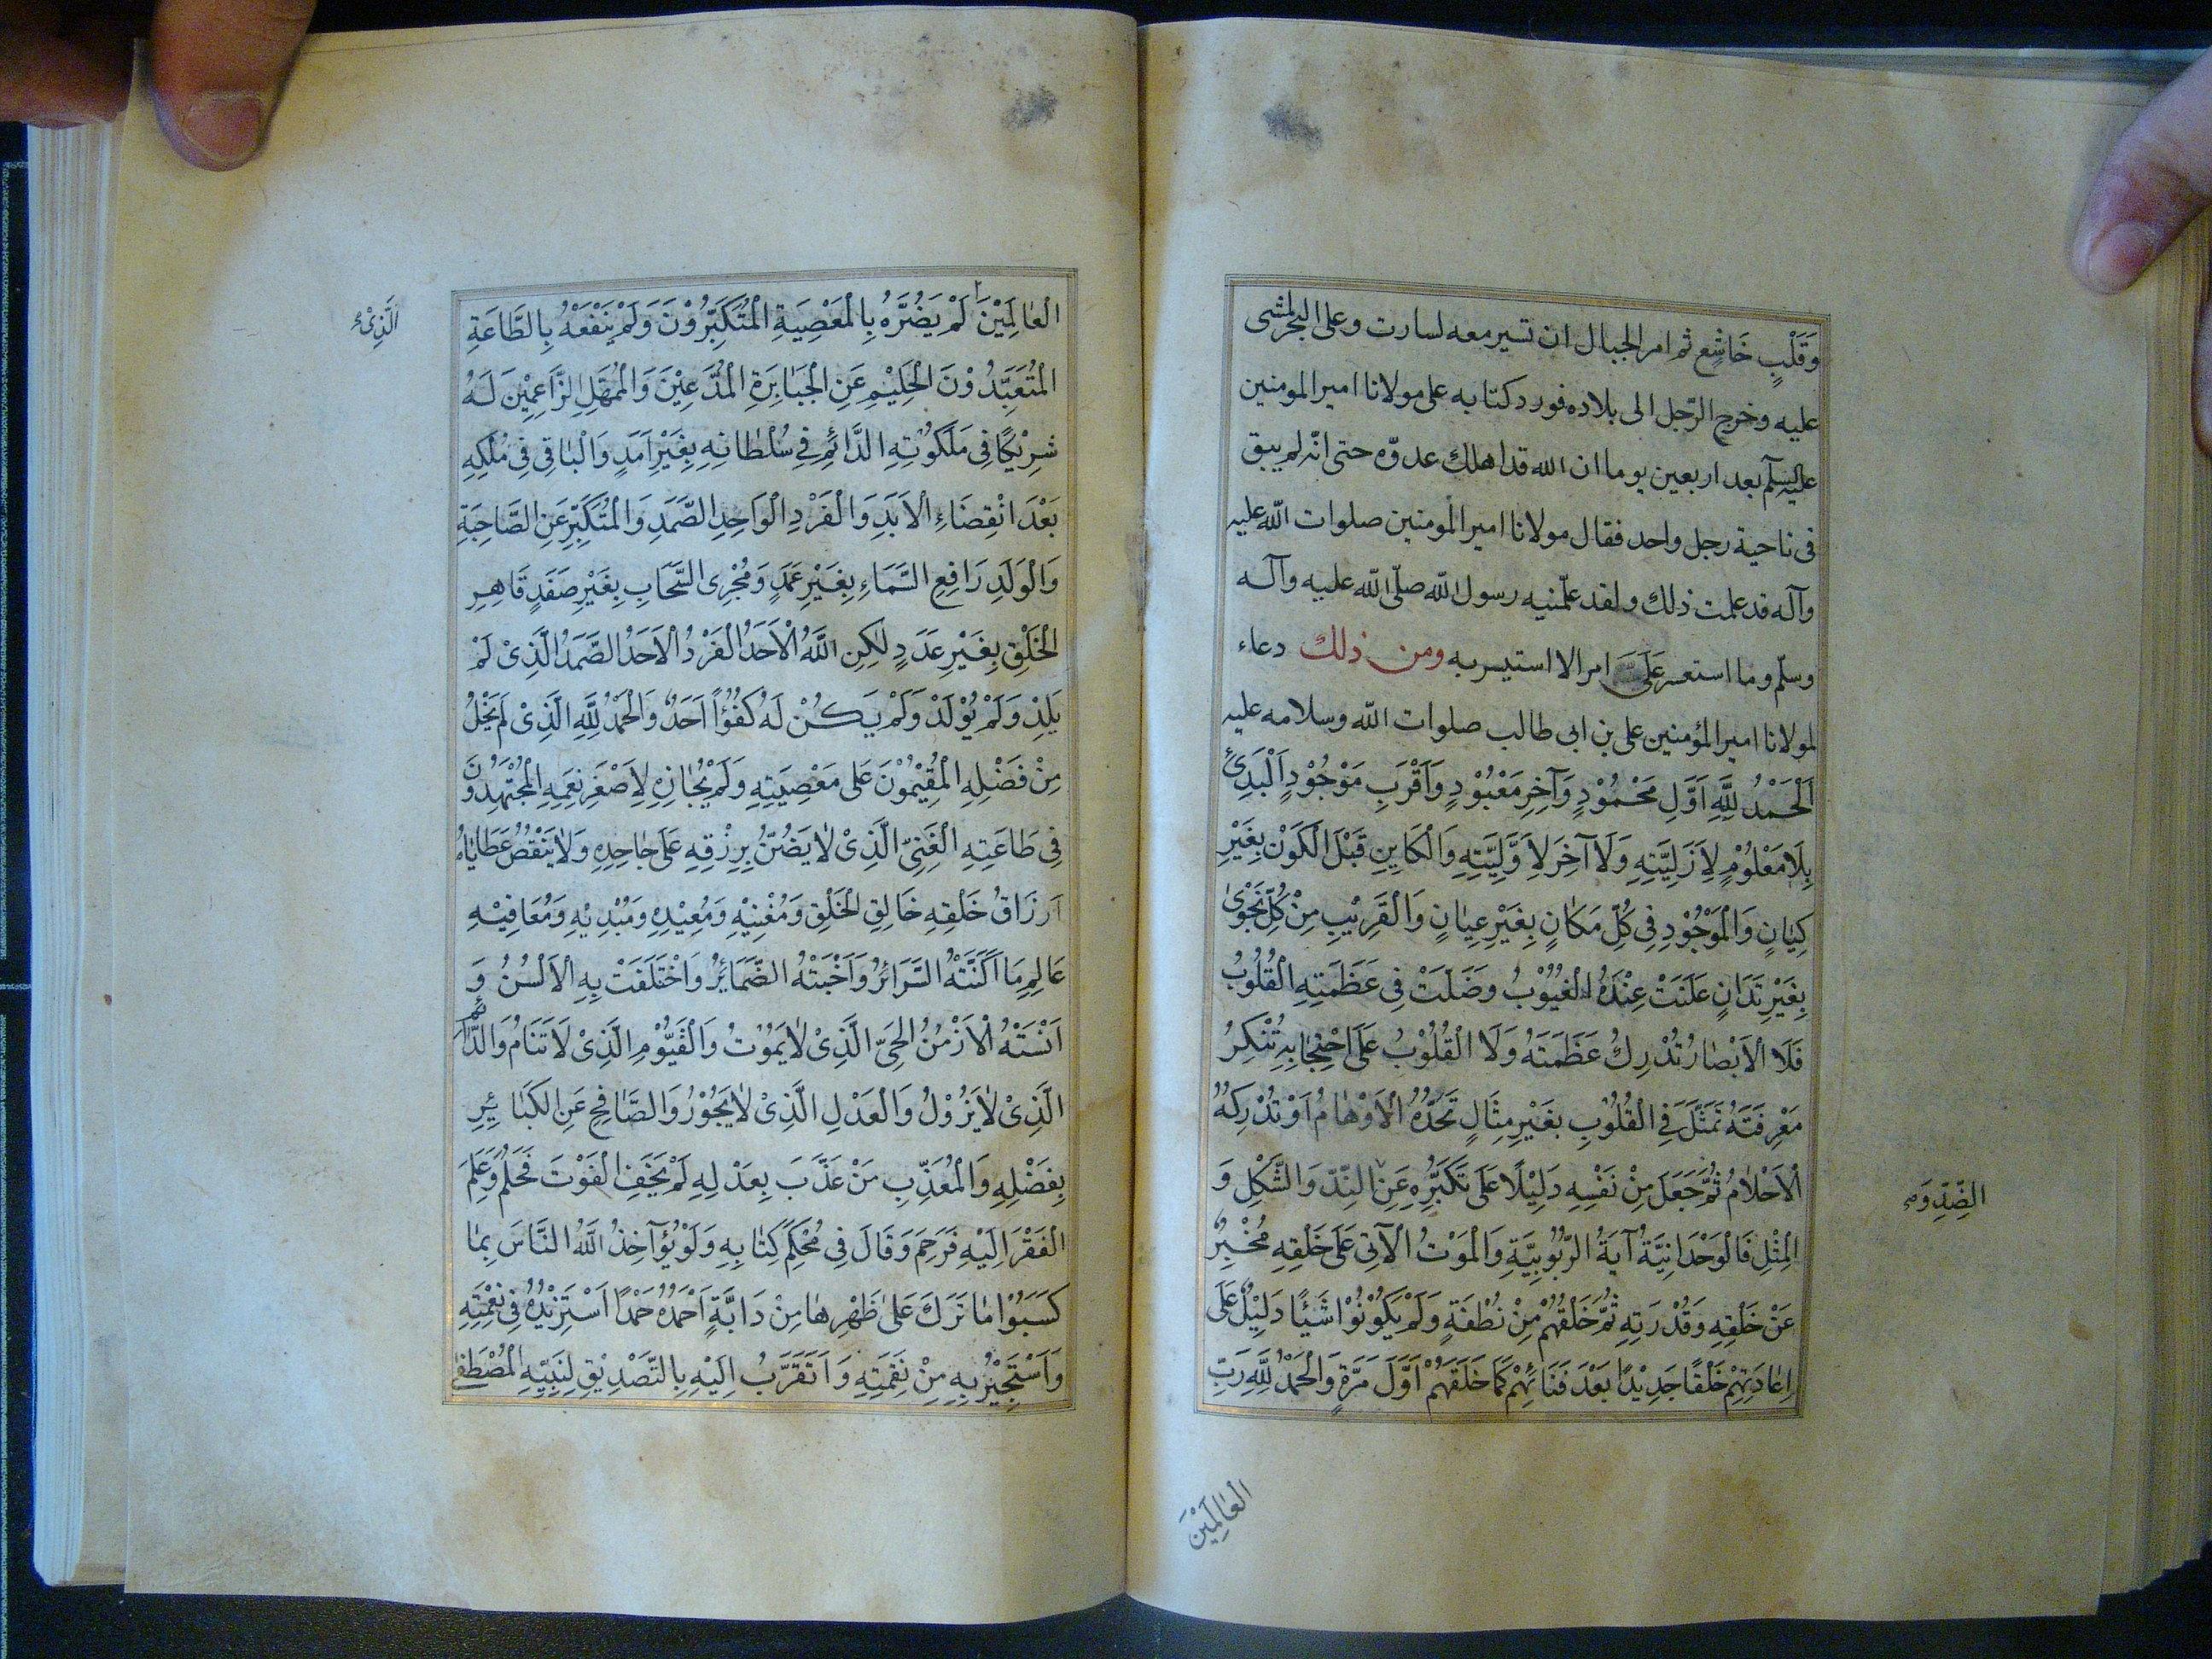 وَقَلْبٍ خَاشِعٍ ثم امر الجبال ان تسير معه لسارت وعلى البحر لمشى
عليه وخرج الرّجل الى بلاده فورد كتابه على مولانا امير المومنين
عليه السلم بعد اربعين يوما ان الله قد اهلك عدوّه حتى انّه لم يبق
فى ناحية رجل واحد فقال مولانا امير المومنين صلوات اللّه عليه
وآله قد علمت ذلك ولقد علّمنيه رسول اللّه صلّى اللّه عليه وآله
وسلّم وما استعسر عَلَىَّ امر الا استيسر به ومن ذلك دعاء
لمولانا امير المؤمنين على بن ابى طالب صلوات اللّه وسلامه عليه
اَلْحَمْدُ لِلّٰهِ اَوَّلِ مَحْمُوْدٍ وَآخِرِ مَعْبُوْدٍ وَاَقْرَبِ مَوْجُوْدٍ اَلْبَدِئُ
بِلَا مَعْلُوْمٍ لِاَزَلِيَّتِهِ وَلَا آخِرَ لِاَوَّلِيَّتِهِ وَالْكَايِنِ قَبْلَ الْكَوْنِ بِغَيْرِ
كِيَانٍ وَالْمَوْجُوْدِ فِى كُلِّ مَكَانٍ بِغَيْرِ عِيَانٍ وَالْقَرِيْبِ مِنْ كُلِّ نَجْوٰى
بِغَيْرِ تَدَانٍ عَلَنَتْ عِنْدَهُ الْغُيُوْبُ وَضَلَّتْ فِى عَظَمَتِهِ الْقُلُوْبُ
فَلَا الْاَبْصَارُ تُدْرِكُ عَظَمَتَهُ وَلَا الْقُلُوْبُ عَلَى احْتِجَابِهِ تُنْكِرُ
مَعْرِفَتَهُ تَمَثَّلَ فِى الْقُلُوْبِ بِغَيْرِ مِثَالٍ تَحُدُّهُ الْاَوْهَامُ اَوْ تُدْرِكُهُ
الْاَحْلَامُ ثُمَّ جَعَلَ مِنْ نَفْسِهِ دَلِيْلًا عَلَى تَكَبُّرِهِ عَنِ النِّدِّ وَالشَّكْلِ وَ
الضِّدِّ وَ صح
الْمِثْلِ فَالْوَحْدَانِيَّةُ آيَةُ الرُّبُوْبِيَّةِ وَالْمَوْتُ الْآتِى عَلَى خَلْقِهِ مُخْبِرٌ
عَنْ خَلْقِهِ وَقُدْرَتِهِ ثُمَّ خَلْقُهُمْ مِنْ نُطْفَةٍ وَلَمْ يَكُوْنُوْا شَيْئًا دَلِيْلٌ عَلَى
اِعَادَتِهِمْ خَلْقًا جَدِيْدًا بَعْدَ فَنَائِهِمْ كَمَا خَلَقَهُمْ اَوَّلَ مَرَّةٍ وَالْحَمْدُ لِلّٰهِ رَبِّ
الْعَالَمِيْنَ
الْعَالَمِيْنَ لَمْ يَضُرَّهُ بِالْمَعْصِيَةِ الْمُتَكَبِّرُوْنَ وَلَمْ يَنْفَعْهُ بِالطَّاعَةِ
الَّذِىْ
الْمُتَعَبِّدُوْنَ الْحَلِيْمِ عَنِ الْجَبَابِرَةِ الْمُدَّعِيْنَ وَالْمُمَهِّلِ الزَّاعِمِيْنَ لَهُ
شَرِيْكًا فِى مَلَكُوْتِهِ الدَّائِمِ فِى سُلْطَانِهِ بِغَيْرِ اَمَدٍ وَالْبَاقِى فِى مُلْكِهِ
بَعْدَ انْقِضَاءِ الْاَبَدِ وَالْفَرْدِ الْوَاحِدِ الصَّمَدِ وَالْمُتَكَبِّرِ عَنِ الصَّاحِبَةِ
وَالْوَلَدِ رَافِعِ السَّمَاءِ بِغَيْرِ عَمَدٍ وَمُجْرِى السَّحَابِ بِغَيْرِ صَفَدٍ قَاهِرِ
الْخَلْقِ بِغَيْرِ عَدَدٍ لٰكِنِ اللّٰهُ الْاَحَدُ الْفَرْدُ الْاَحَدُ الصَّمَدُ الَّذِىْ لَمْ
يَلِدْ وَلَمْ يُوْلَدْ وَلَمْ يَكُنْ لَهُ كُفُوًا اَحَدٌ وَالْحَمْدُ لِلّٰهِ الَّذِىْ لَمْ يَخْلُ
مِنْ فَضْلِهِ الْمُقِيْمُوْنَ عَلى مَعْصِيَتِهِ وَلَمْ يُجَازِهِ لِاَصْغَرِ نِعَمِهِ الْمُجْتَهِدُوْنَ
فِى طَاعَتِهِ الْغَنِىِّ الَّذِىْ لَا يَضُنُّ بِرِزْقِهِ عَلَى جَاحِدِهِ وَلَا يَنْقُصُ عَطَايَاهُ
اَرْزَاقُ خَلْقِهِ خَالِقِ الْخَلْقِ وَمُغْنِيْهِ وَمُعِيْدِهِ وَمُبْدِيْهِ وَمُعَافِيْهِ
عَالِمِ مَا اَكَنَّتْهُ السَّرَائِرُ وَاَخْبَتْهُ الضَّمَائِرُ وَاخْتَلَفَتْ بِهِ الْاَلْسُنُ وَ
اَنْسَتْهُ الْاَزْمُنُ الْحَىِّ الَّذِىْ لَا يَمُوْتُ وَالْقَيُّوْمِ الَّذِىْ لَا يَنَامُ وَالدَّائِمِ
الَّذِىْ لَا يَزُوْلُ وَالْعَدْلِ الَّذِىْ لَا يَجُوْرُ وَالصَّافِحِ عَنِ الْكَبَائِرِ
بِفَضْلِهِ وَالْمُعَذِّبِ مَنْ عَذَّبَ بِعَدْلِهِ لَمْ يَخَفِ الْفَوْتَ فَحَلُمَ وَعَلِمَ
الْفَقْرَ اِلَيْهِ فَرَحِمَ وَقَالَ فِى مُحْكَمِ كِتَابِهِ وَلَوْ يُؤَآخِذُ اللّٰهُ النَّاسَ بِمَا
كَسَبُوْا مَا تَرَكَ عَلَى ظَهْرِهَا مِنْ دَابَّةٍ اَحْمَدُهُ حَمْدًا اَسْتَزِيْدُهُ فِى نِعْمَتِهِ
وَاَسْتَجِيْرُ بِهِ مِنْ نِقْمَتِهِ وَ اَتَقَرَّبُ اِلَيْهِ بِالتَّصْدِيْقِ لِنَبِيِّهِ الْمُصْطَفٰى